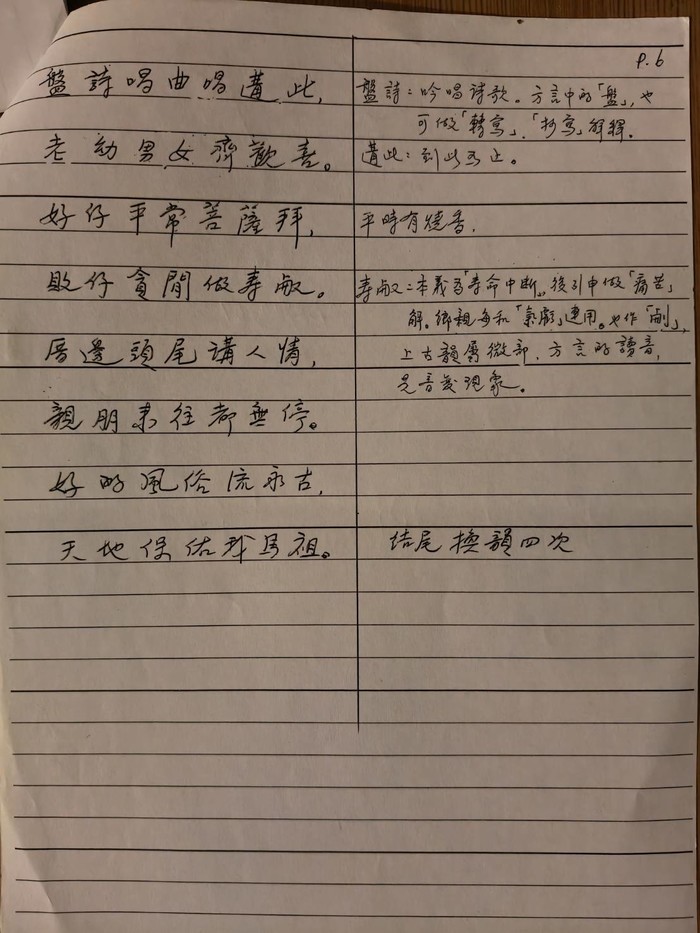 P.6
盤詩唱曲唱遘此，
老幼男女齊歡喜。
好仔平常菩薩拜，
敗仔貪閒做壽㕑。
厝邊頭尾講人情，
親朋來往都無停。
好的風俗流永古，
天地保佑我馬祖。
盤詩：吟唱诗歌。方言中的「盤」，也
可做「轉寫」、「抄寫」解釋。
遘此：到此为止。
平時有燒香．
本義為「壽命中斷」，後引申做「痛苦」
解。鄉親多和「氣」連用。也作「剮」，
上古韻屬微部．方言的讀音，
是音变现象。
结尾換韻四次